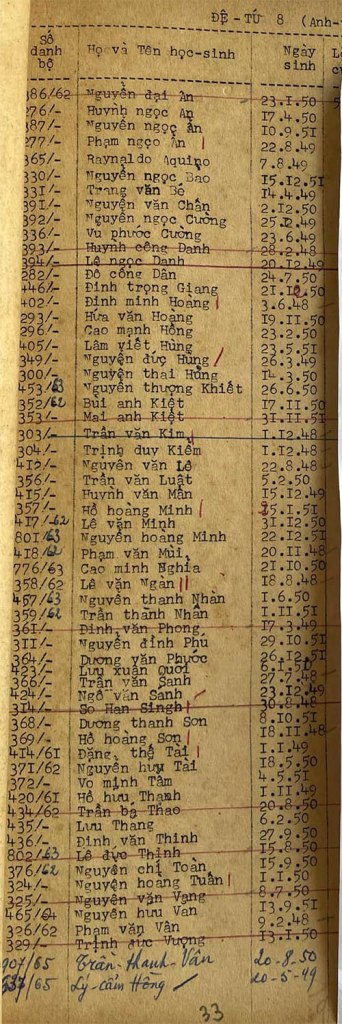 ĐỆ - TỨ 8 (Anh-
Số danh bộ Họ và Tên học-sinh Ngày sinh
386/62 Nguyễn đại An 23.I.50
276/- Huỳnh ngọc An 17.4.50
387/- Nguyễn ngọc ẩn 10.9.51
277/- Phạm ngọc Ẩn 22.8.49
365/- Raynaldo Aquino 7.8.49
330/- Nguyễn ngọc Bảo 15.12.51
331/- Trang văn Bé 14.4.49
391/- Nguyễn văn Chẩn 2.12.50
392/- Nguyễn ngọc Cường 25.12.49
336/- Vũ phước Cường 23.6.49
393/- Huỳnh công Danh 28.2.48
394/- Lê ngọc Danh 20.12.49
282/- Đỗ công Dân 24.7.50
446/- Đinh trọng Giang 21.12.50
402/- Đinh minh Hoàng 3.6.48
293/- Hứa văn Hoàng 19.II.50
296/- Cao mạnh Hồng 23.2.50
405/- Lâm viết Hùng 23.5.51
349/- Nguyễn đức Hùng 26.3.49
300/- Nguyễn thái Hùng 14.3.50
453/63 Nguyễn thượng Khiết 26.6.50
352/62 Bùi anh Kiệt 17.II.50
353/- Mai anh Kiệt 31.II.51
303/- Trần văn Kim 1.12.48
304/- Trịnh duy Kiểm 1.12.48
412/- Nguyễn văn Lê 22.8.48
356/- Trần văn Luật 5.2.50
415/- Huỳnh văn Mẫn 15.12.49
357/- Hồ hoàng Minh 25.I.51
417/-62 Lê văn Minh 31.12.50
801/63 Nguyễn hoàng Minh 22.12.51
418/62 Phạm văn Mùi 20.II.48
776/63 Cao minh Nghĩa 21.10.50
358/62 Lê văn Ngàn 18.8.48
457/63 Nguyễn thanh Nhàn 1.6.50
359/62 Trần thành Nhân 1.II.51
361/- Đinh văn Phong 17.3.49
311/- Nguyễn đình Phú 29.10.51
364/- Dương văn Phước 26.12.51
423/- Lưu xuân Quới 6.1.50
366/- Trần văn Sanh 27.7.48
424/- Ngô văn Sanh 23.12.49
314/- So Han Singh 30.8.48
368/- Dương thanh Sơn 8.10.51
369/- Hồ hoàng Sơn 18.II.48
414/61 Đặng thế Tài 1.1.49
371/62 Nguyễn huy Tài 18.5.50
372/- Võ minh Tâm 4.5.51
420/61 Hồ hữu Thạnh 1.II.49
434/62 Trần bá Thao 20.8.50
435/- Lưu Thăng 6.2.50
436/- Đinh văn Thinh 27.9.50
802/63 Lê đức Thịnh 15.8.50
376/62 Nguyễn chí Toàn 15.9.50
324/- Nguyễn hoàng Tuấn 1.1.50
325/- Nguyễn văn Vạng 8.7.50
465/ Nguyễn hữu Vân 13.9.51
326/62 Phạm văn Vân 9.2.48
329/- Trịnh đức Vượng 13.I.50
907/65 Trần-thanh-Vân 20-8-50
/65 Lý-cẩm Hồng 20-5-49
33